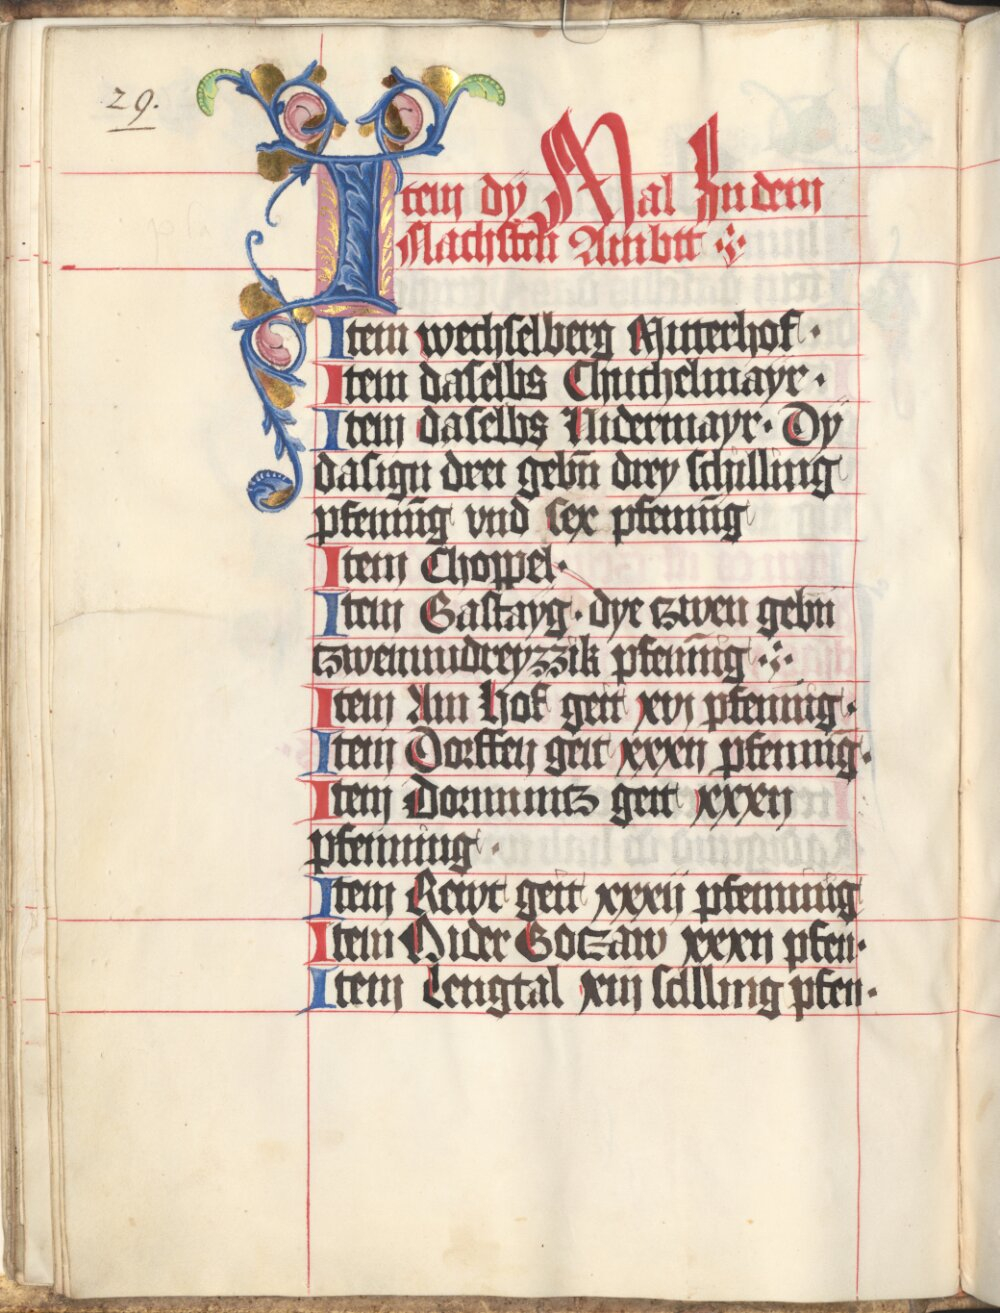 29.
Item dy Mal In dem
Nachsten Ambtt
Item wechselberg Mitterhof ·
Item daselbs Chuchelmayr ·
Item daselbs Nidermayr · Dy
dasign drei gebn̄ drey schilling
pfenni̅g vnd sex pfenni̅g
Item Choppel ·
Item Gastayg · dye czwen gebn̄
czwenundreyzzik pfenni̅g
Item Am Hof geit xvj pfennig ·
Item Dorffen geit xxxij pfenni̅g ·
Item Dornnintz geit xxxij
pfenning ·
Item Rewt geit xxxij pfenning
Item Nider Goczaw xxxij pfen ·
Item Lengtal xiij schlling pfen ·